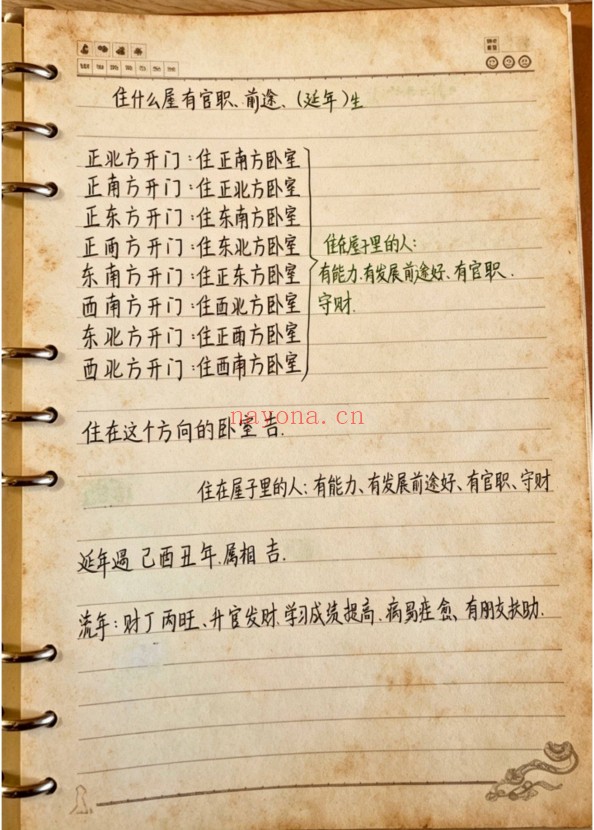 住什么屋有官职、前途、(延年)生
正北方开门:住正南方卧室
正南方开门:住正北方卧室
正东方开门:住东南方卧室
正西方开门:住东北方卧室
东南方开门:住正东方卧室
西南方开门:住西北方卧室
东北方开门:住正西方卧室
西北方开门:住西南方卧室
住在屋子里的人:
有能力、有发展前途好、有官职、
守财.
住在这个方向的卧室吉.
nayona.cn
住在屋子里的人:有能力、有发展前途好、有官职、守财
延年遇 己酉丑年.属相吉.
流年:财丁丙旺、升官发财.学习成绩提高、病易痊愈、有朋友扶助.